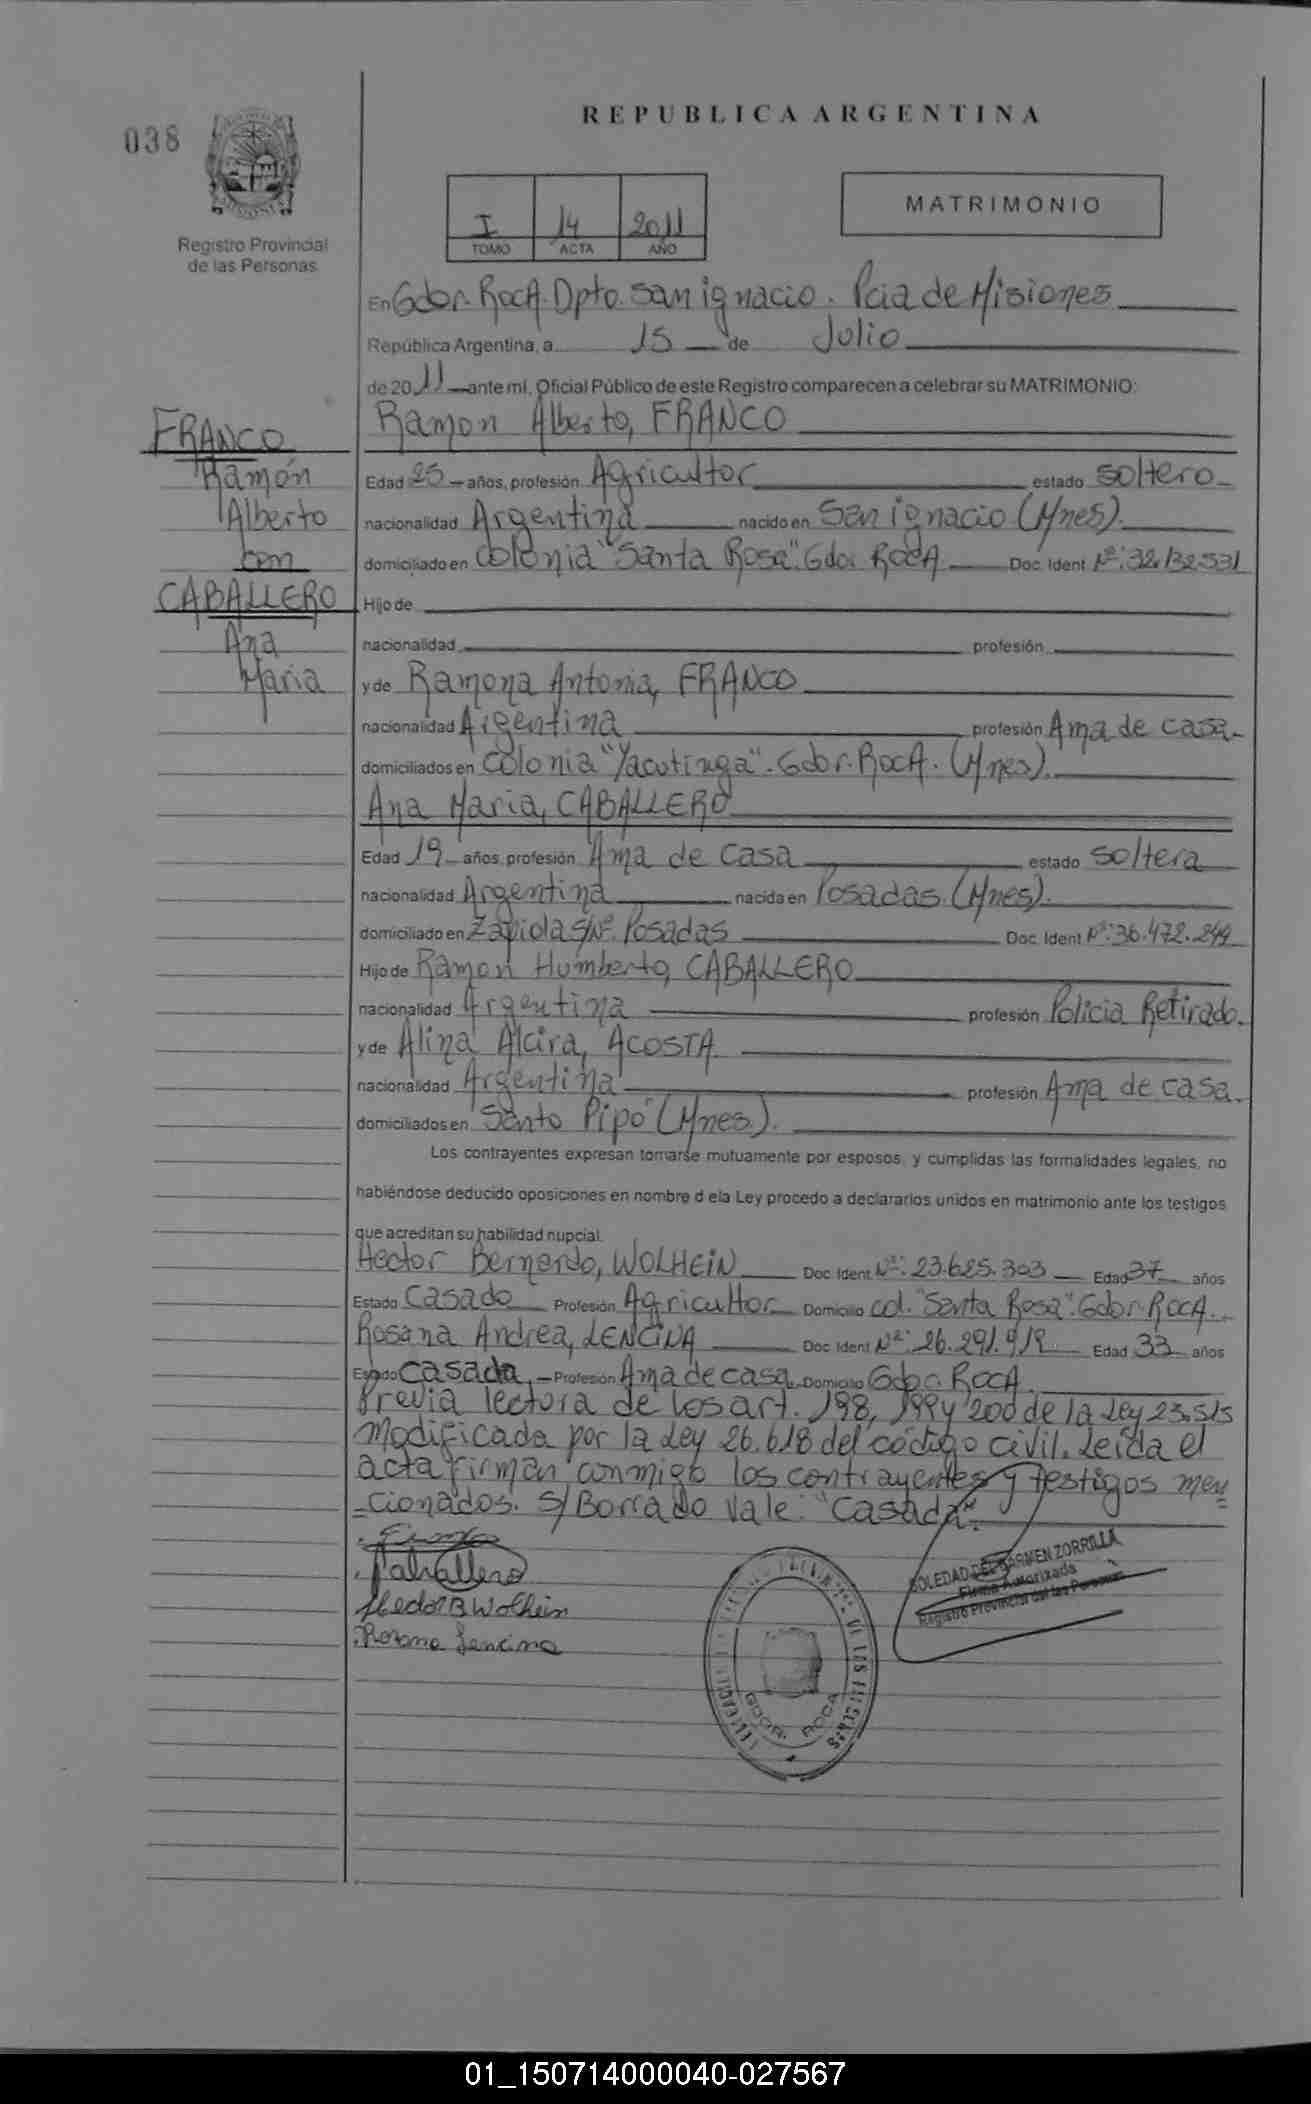 038
REPUBLICA ARGENTINA
Registro Provincial
de las Personas
I 14 2011
TOMO ACTA AÑO
MATRIMONIO
En Gdor. Roca. Dpto. San ignacio. Pcia de Misiones
República Argentina, a 15 de Julio
de 2011 ante mí, Oficial Público de este Registro comparecen a celebrar su MATRIMONIO:
FRANCO
Ramón
Alberto
con
CABALLERO
Ana
Maria
Ramon Alberto, FRANCO
Edad 25 años, profesión Agricultor estado soltero
nacionalidad Argentina nacido en San ignacio (Mnes).
domiciliado en colonia "Santa Rosa". Gdor Roca Doc. Ident Nº: 32.132.531
Hijo de
nacionalidad profesión
y de Ramona Antonia, FRANCO
nacionalidad Argentina profesión Ama de casa
domiciliados en colonia "Yacutinga". Gdor. Roca. (Mnes).
Ana Maria, CABALLERO
Edad 19 años, profesión Ama de casa estado soltera
nacionalidad Argentina nacida en Posadas (Mnes).
domiciliado en Zapiola S/Nº Posadas Doc. Ident Nº: 36.472.244
Hijo de Ramon Humberto, CABALLERO
nacionalidad Argentina profesión Policia Retirado.
y de Alina Alcira, ACOSTA
nacionalidad Argentina profesión Ama de casa.
domiciliados en "Santo Pipo" (Mnes).
Los contrayentes expresan tomarse mutuamente por esposos, y cumplidas las formalidades legales, no
habiéndose deducido oposiciones en nombre d ela Ley procedo a declararlos unidos en matrimonio ante los testigos
que acreditan su habilidad nupcial.
Hector Bernardo, WOLHEIN Doc. Ident Nº: 23.625.303 Edad 37 años
Estado Casado Profesión Agricultor Domicilio col. "Santa Rosa". Gdor. Roca.
Rosana Andrea, LENCINA Doc. Ident Nº: 26.291.912 Edad 33 años
Estado Casada, Profesión Ama de casa, Domicilio Gdor. Roca.
Previa lectura de los art. 198, 199 y 200 de la Ley 23.515
modificada por la Ley 26.618 del código civil. Leída el
acta firman conmigo los contrayentes y testigos men
=cionados. S/Borrado Vale: "Casada".
Caballero
Hector B Wolhein
Rosana Lencina
GDOR. ROCA
SOLEDAD DEL CARMEN ZORRILLA
Firma Autorizada
Registro Provincial de las Personas
01_150714000040-027567